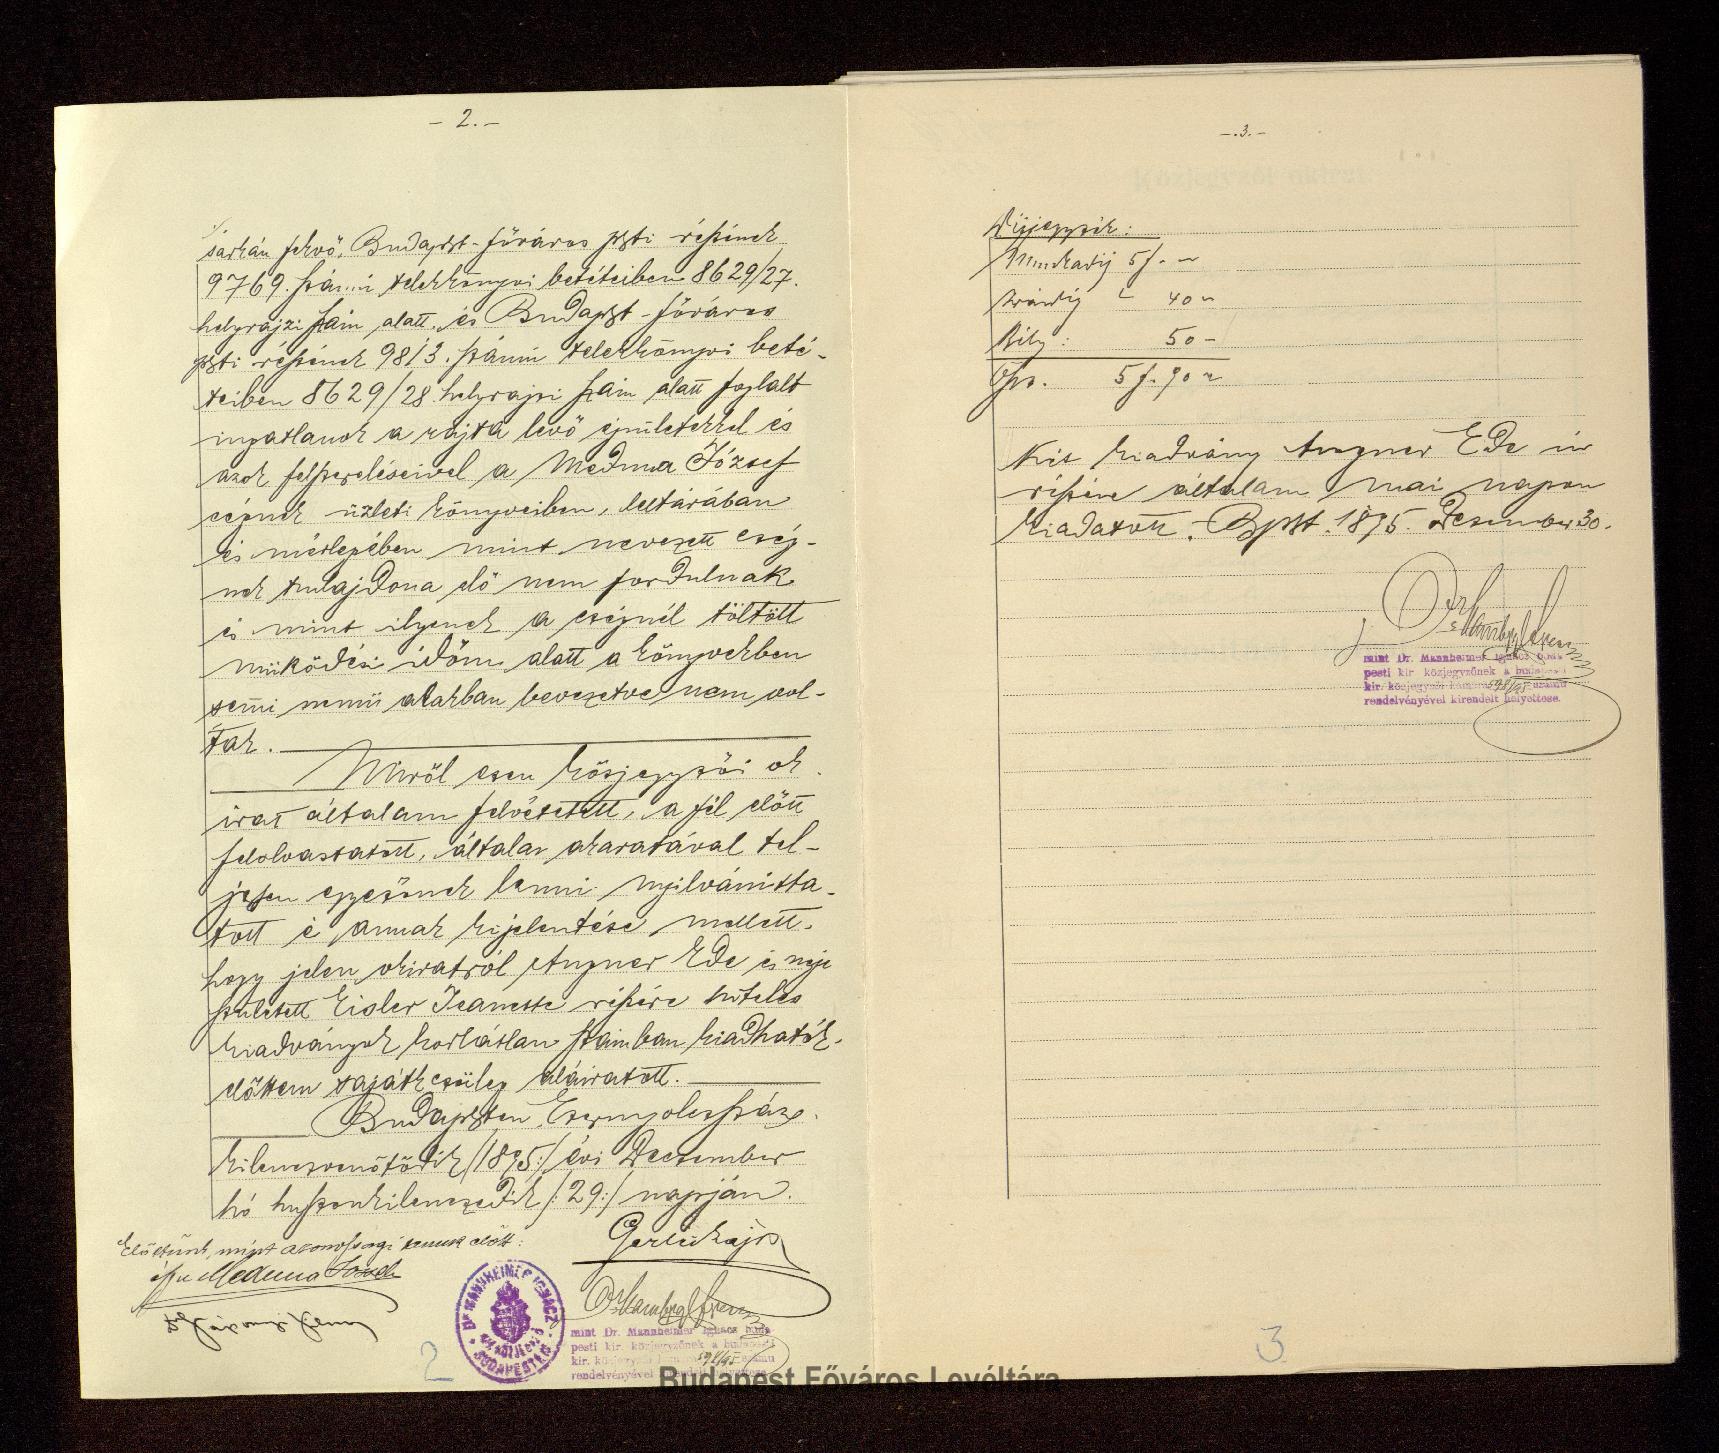 - 2. -
sarkán fekvő, Budapest-főváros pesti részének
9769. számú telekkönyvi betéteiben 8629/27.
helyrajzi szám alatt és Budapest-főváros
pesti részének 9813. számú telekkönyvi beté-
teiben 8629/28 helyrajzi szám alatt foglalt
ingatlanok a rajta levő épületekkel és
azok felszereléseivel a Meduna József
cégnek üzleti könyveiben, leltárában
és mérlegében mint nevezett cég-
nek tulajdona elő nem fordulnak
és mint ilyenek a cégnél töltött
működési időm alatt a könyvekben
semmi nemű alakban bevezetve nem vol-
tak.
Miről ezen közjegyzői ok
irat általam felvétetett, a fél előtt
felolvastatott, általa akaratával tel-
jesen egyezőnek lenni nyilvánítta-
tott é annak kijelentése mellett,
hogy jelen okiratról Angner Ede és neje
született Eisler Jeanette részére hiteles
kiadványok korlátlan számban kiadhatók,
előttem sajátkezüleg aláiratott.
Budapesten, Ezernyolcszáz-
kilenczvenötödik /1895/ évi December
hó huszonkilenczedik /:29:/ napján.
Előttünk, mint azonossági tanuk előtt:
Meduna József
Gerlei Lajos
Dr MANNHEIMER IGNÁCZ
KIR. KÖZJEGYZŐ
BUDAPESTEN
mint Dr. Mannheimer Ignácz buda-
pesti kir. közjegyzőnek a budapesti
kir. közjegyzői kamara 598/95 számu
rendelvényével kirendelt helyettese.
2
Budapest Főváros Levéltára
- 3. -
Díjjegyzék:
Munkadíj 5 f. -
Irásdíj " 40 "
Bély: 50 -
Össz. 5 f. 90 "
Kit kiadvány Angner Ede úr
részére általam mai napon
kiadatott. Bpest. 1895. Desember 30.
mint Dr. Mannheimer Ignácz buda-
pesti kir. közjegyzőnek a budapesti
kir. közjegyzői kamara 598/95 számu
rendelvényével kirendelt helyettese.
3